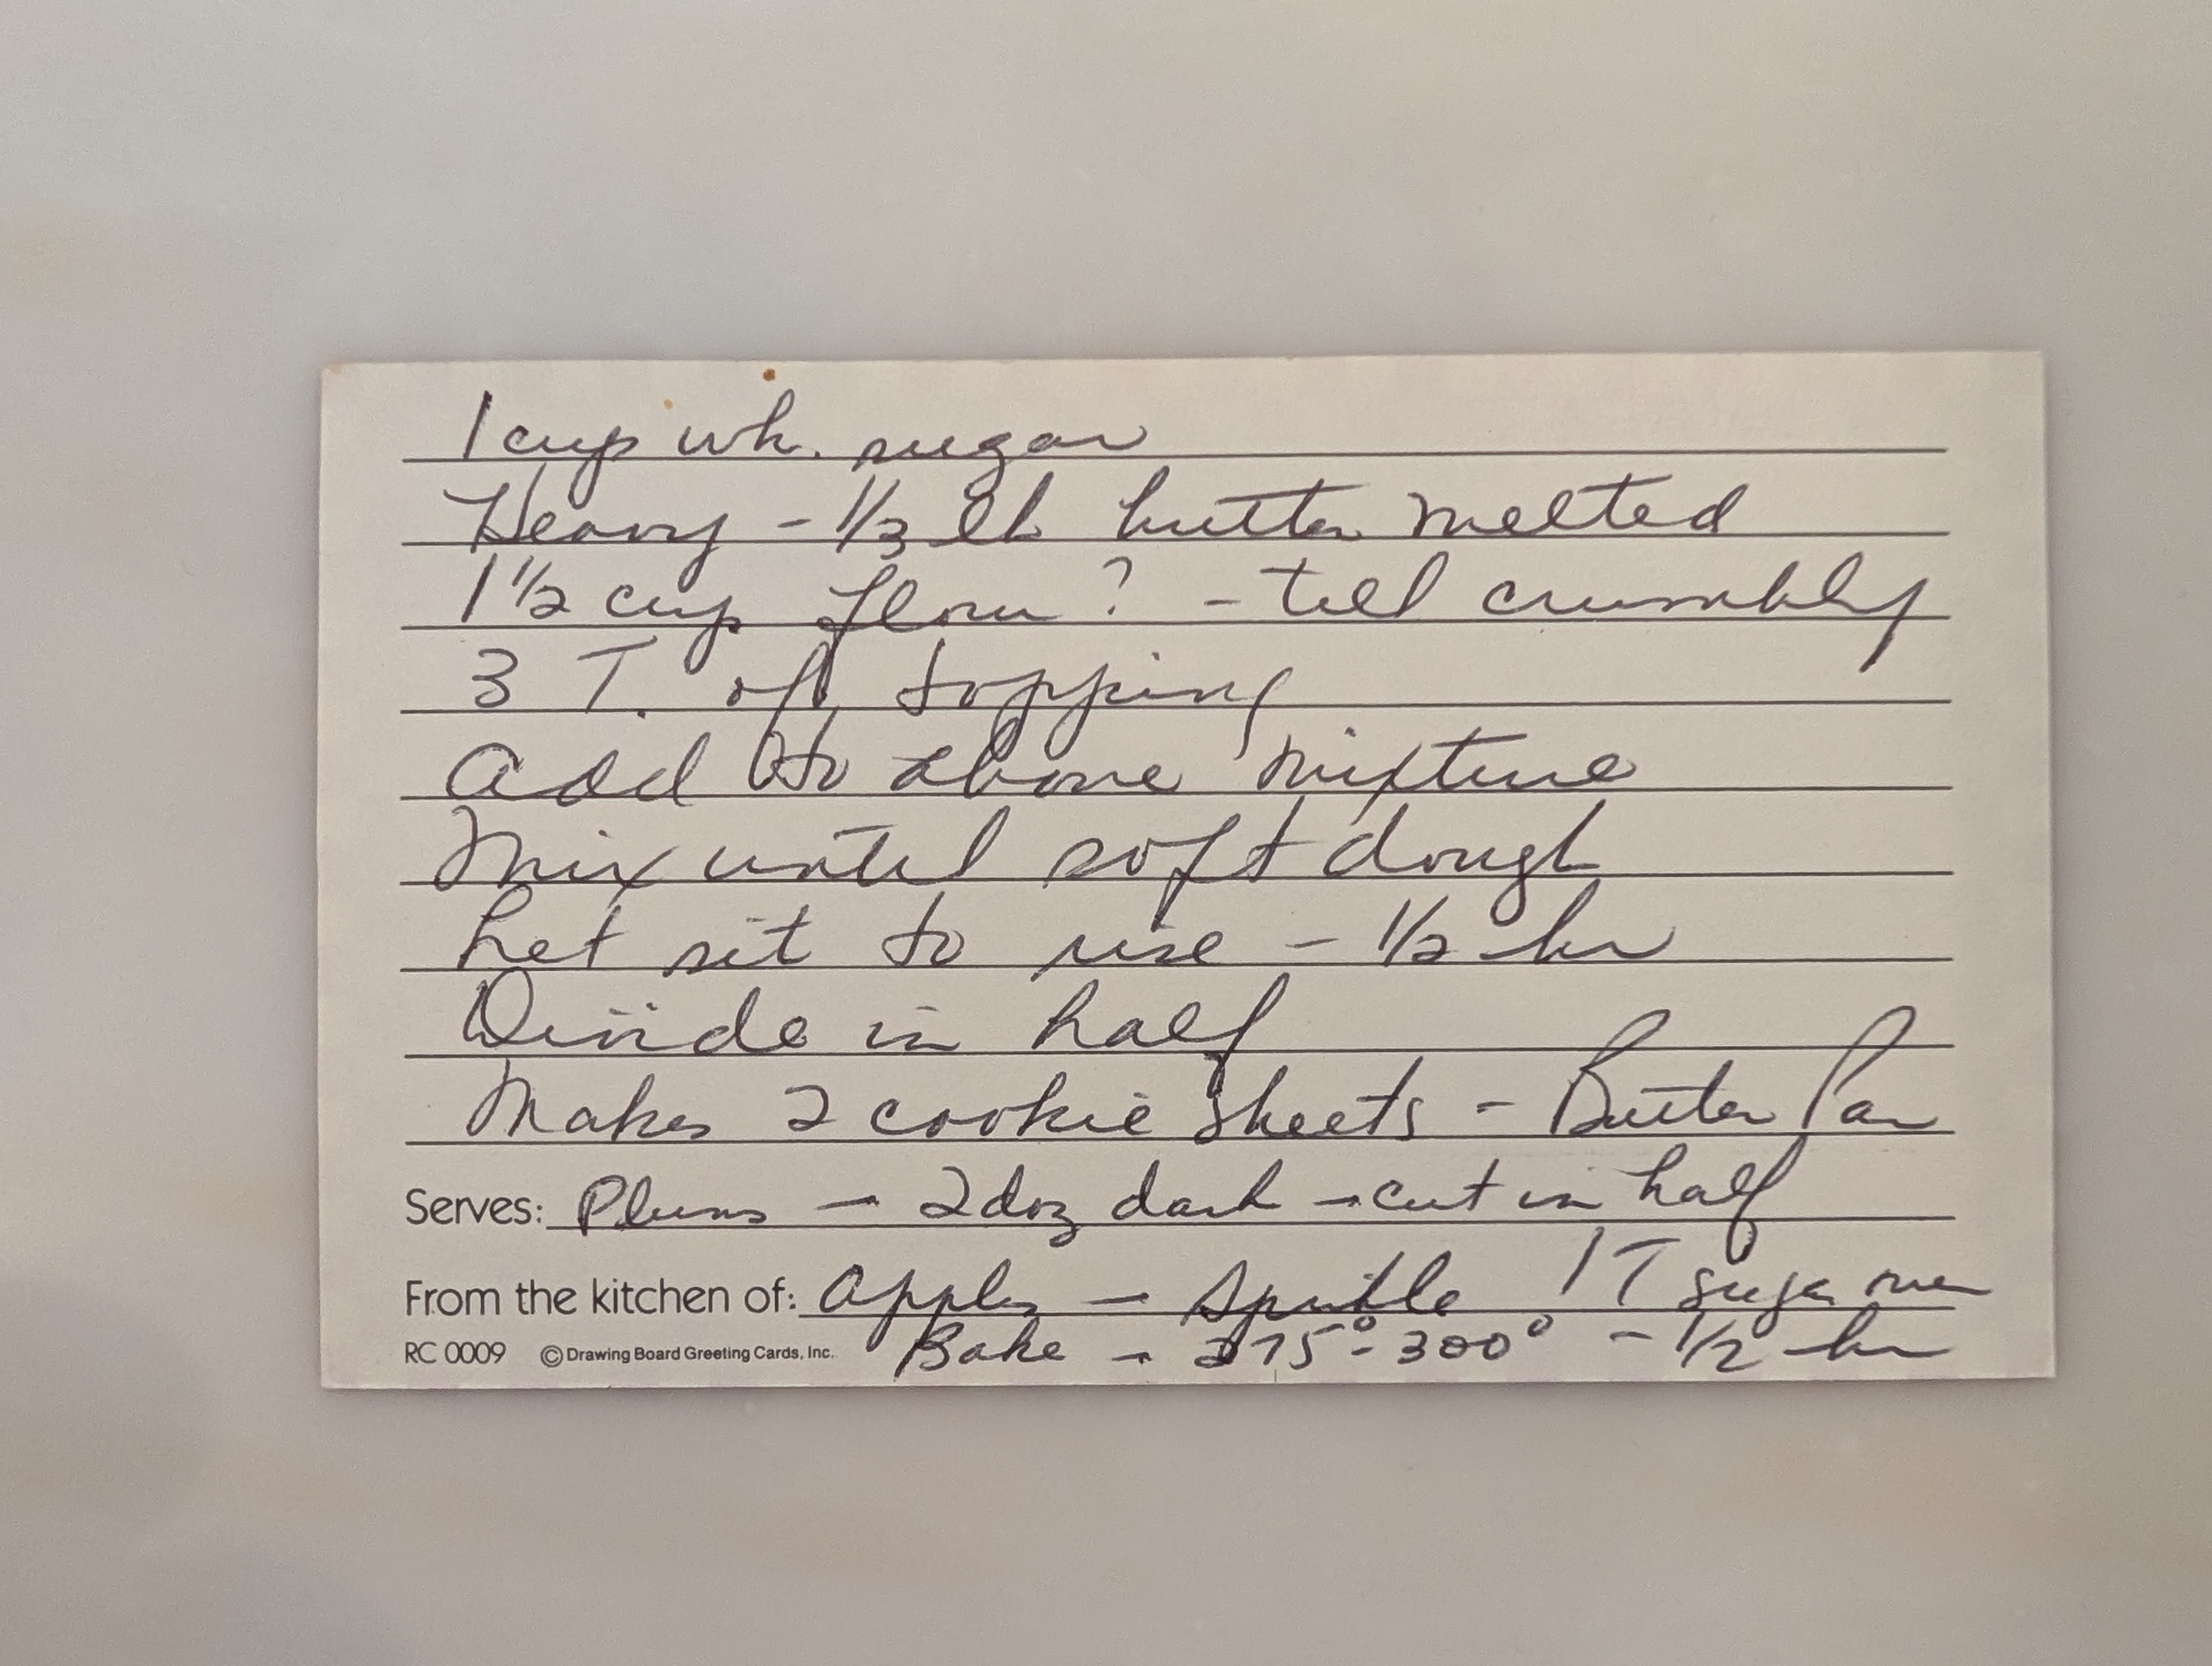 1 cup wh. sugar
Heavy - 1/3 lb butter melted
1 1/2 cup flour ? - till crumbly
3 T. of topping
Add to above mixture
Mix until soft dough
Let sit to rise - 1/2 hr
Divide in half
Makes 2 cookie sheets - Butter Pan
Serves: Plums - 2 doz dark - cut in half
From the kitchen of: Apples - Sprinkle 1 T sugar over
RC 0009 © Drawing Board Greeting Cards, Inc. Bake - 275° - 300° - 1/2 hr